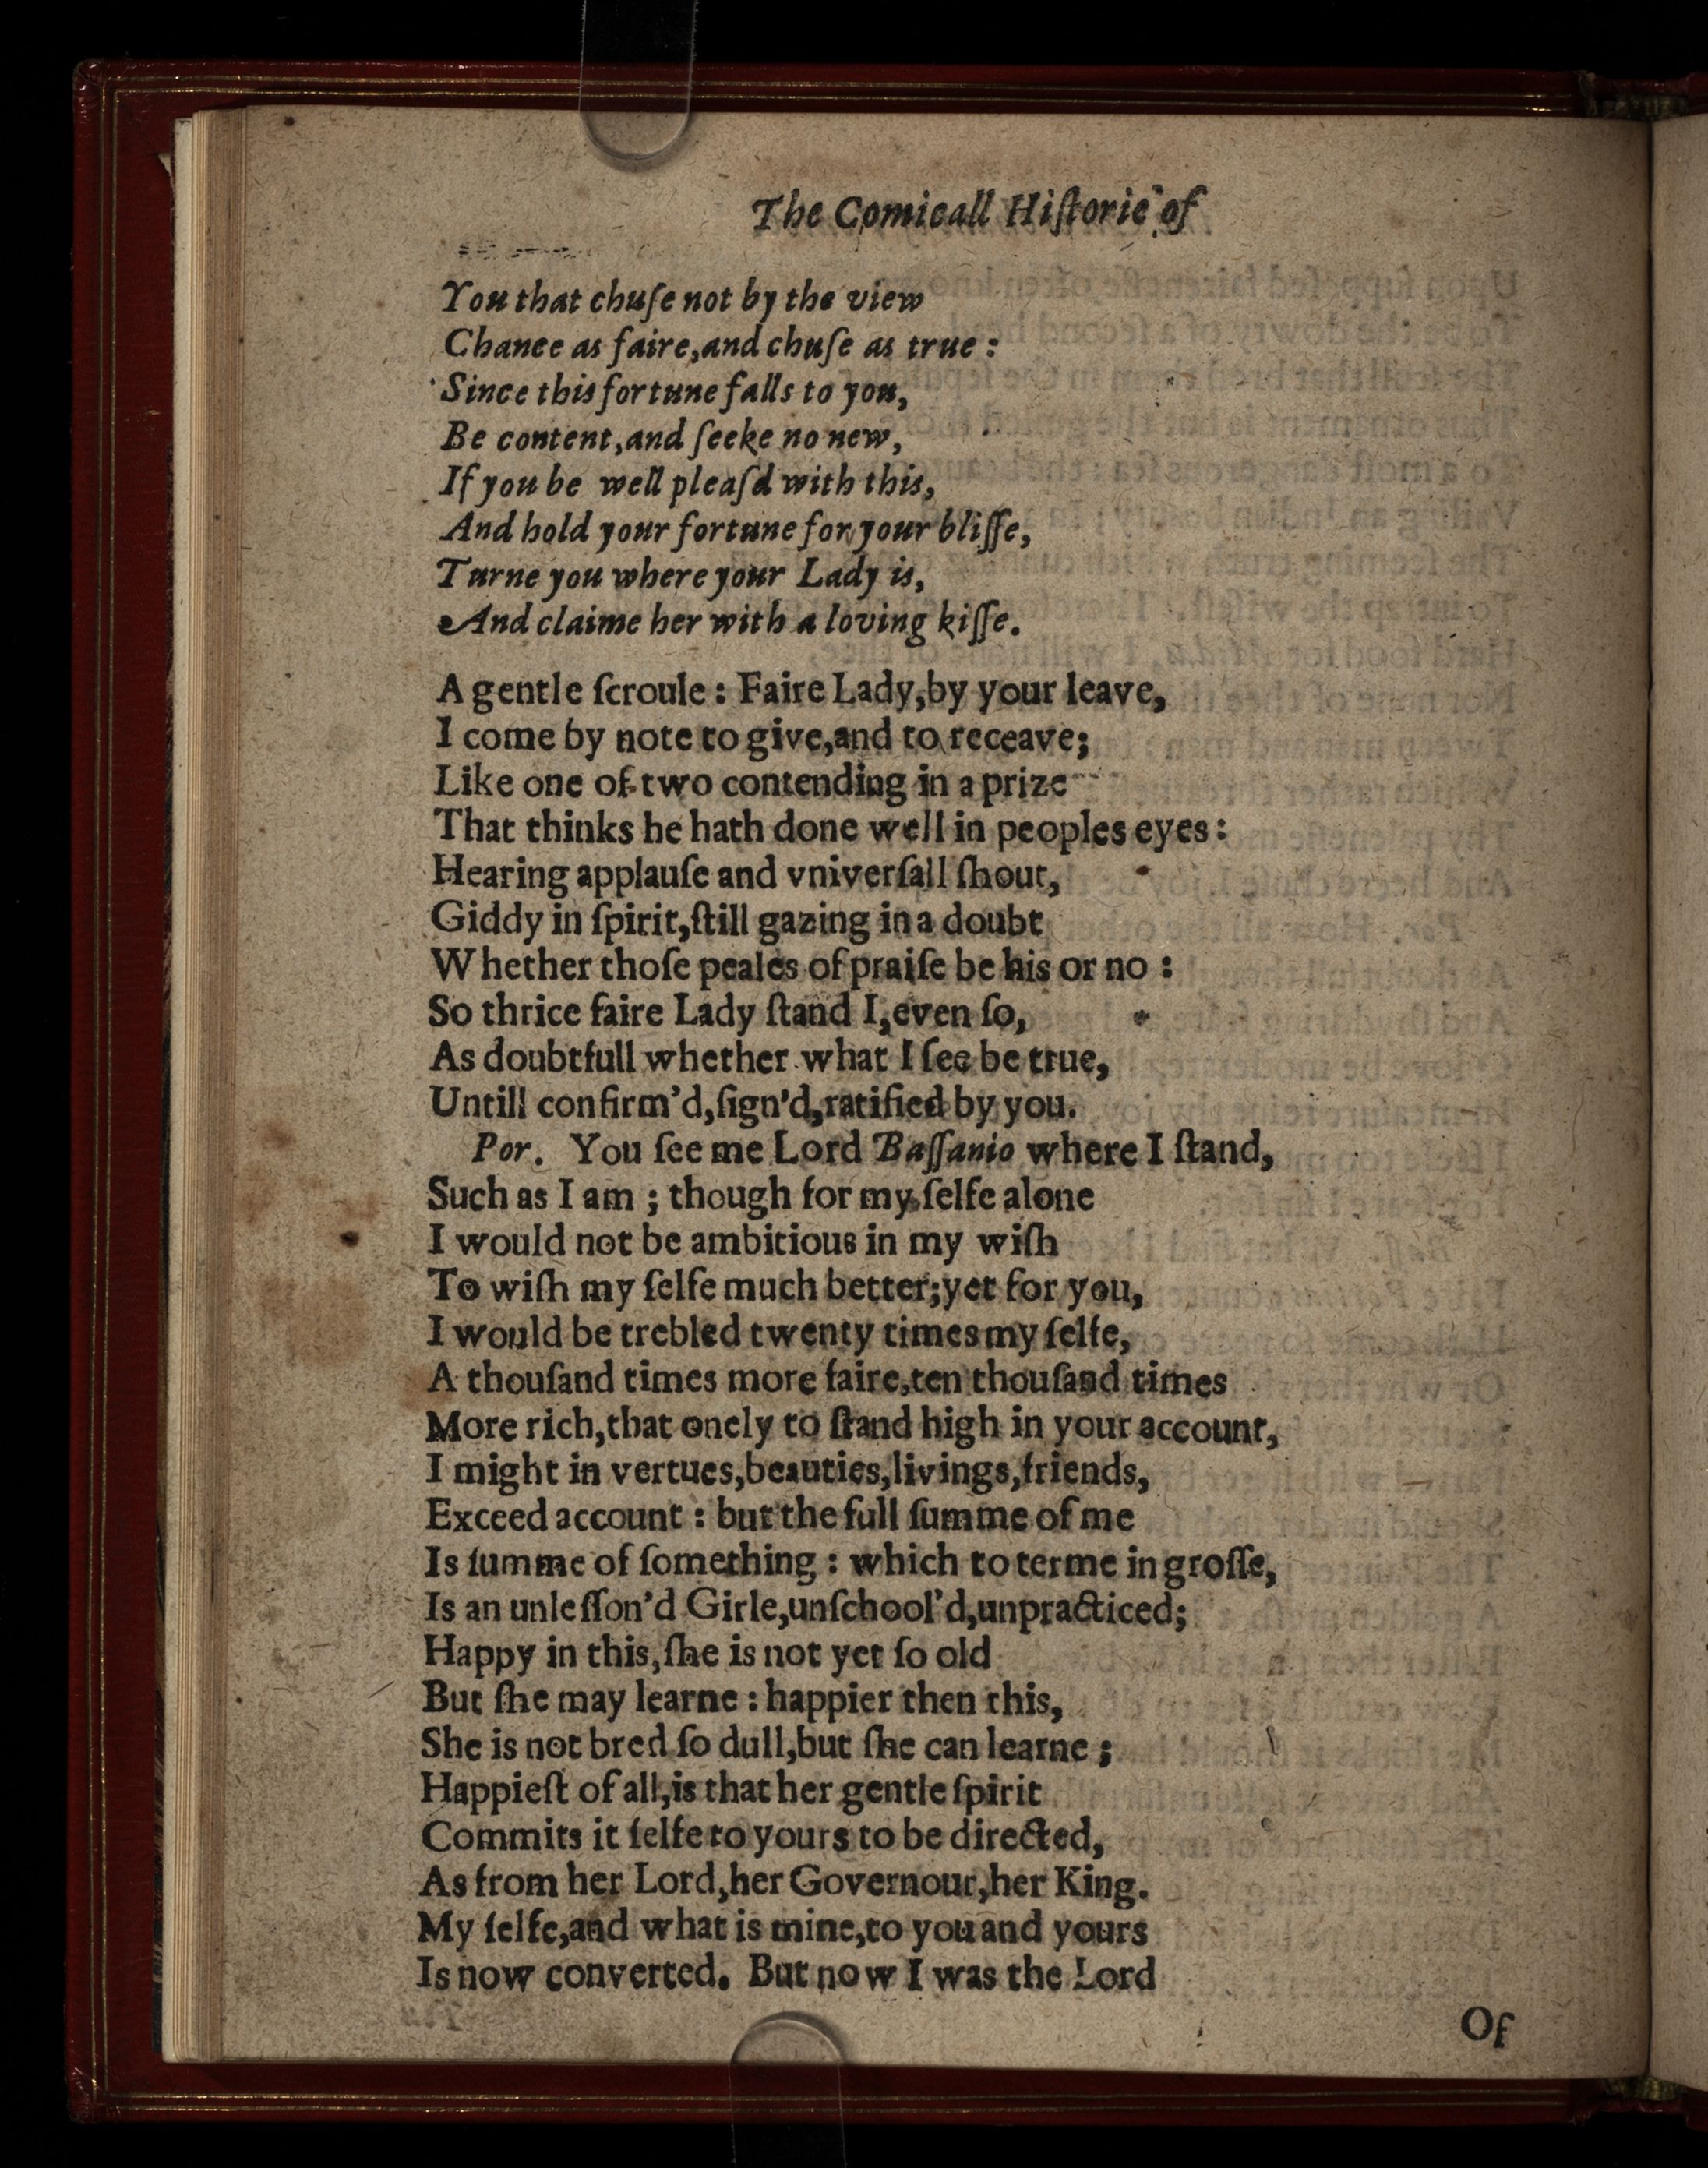 The Comicall Hiſtorie of
You that chuſe not by the view
Chance as faire,and chuſe as true :
Since this fortune falls to you,
Be content,and ſeeke no new,
If you be well pleaſd with this,
And hold your fortune for your bliſſe,
Turne you where your Lady is,
And claime her with a loving kiſſe.
A gentle ſcroule : Faire Lady,by your leave,
I come by note to give,and to receave;
Like one of two contending in a prize
That thinks he hath done well in peoples eyes :
Hearing applauſe and vniverſall ſhout,
Giddy in ſpirit,ſtill gazing in a doubt
Whether thoſe peales of praiſe be his or no :
So thrice faire Lady ſtand I,even ſo,
As doubtfull whether what I ſee be true,
Untill confirm'd,ſign'd,ratified by you.
Por. You ſee me Lord Baſſanio where I ſtand,
Such as I am ; though for my ſelfe alone
I would not be ambitious in my wiſh
To wiſh my ſelfe much better;yet for you,
I would be trebled twenty times my ſelfe,
A thouſand times more faire,ten thouſand times
More rich,that onely to ſtand high in your account,
I might in vertues,beauties,livings,friends,
Exceed account : but the full ſumme of me
Is ſumme of ſomething : which to terme in groſſe,
Is an unleſſon'd Girle,unſchool'd,unpracticed;
Happy in this,ſhe is not yet ſo old
But ſhe may learne : happier then this,
She is not bred ſo dull,but ſhe can learne ;
Happieſt of all,is that her gentle ſpirit
Commits it ſelfe to yours to be directed,
As from her Lord,her Governour,her King.
My ſelfe,and what is mine,to you and yours
Is now converted. But now I was the Lord
Of